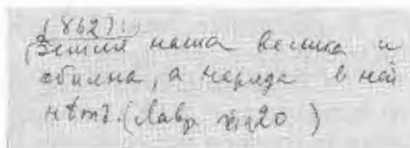 (862).
Земля наша велика и
обильна, а наряда в ней
нѣтъ. (Лавр. 20)